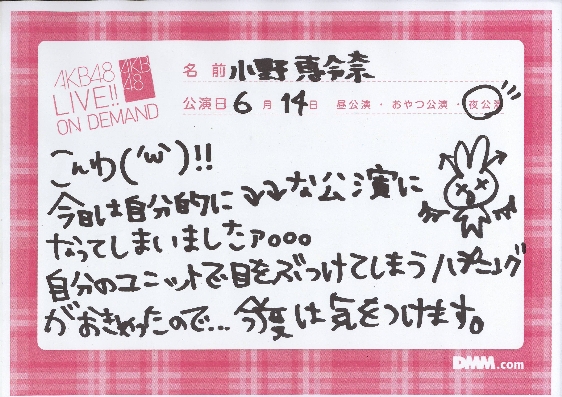 AKB48
LIVE!!
ON DEMAND
AKB
48
名前 小野恵令奈
公演日 6月14日 昼公演・おやつ公演・夜公演
こんわ('ω')!!
今日は自分的に↓↓な公演に
なってしまいましたァ。。。
自分のユニットで目をぶつけてしまうハプニング
がおきちゃったので…今度は気をつけます。
DMM.com